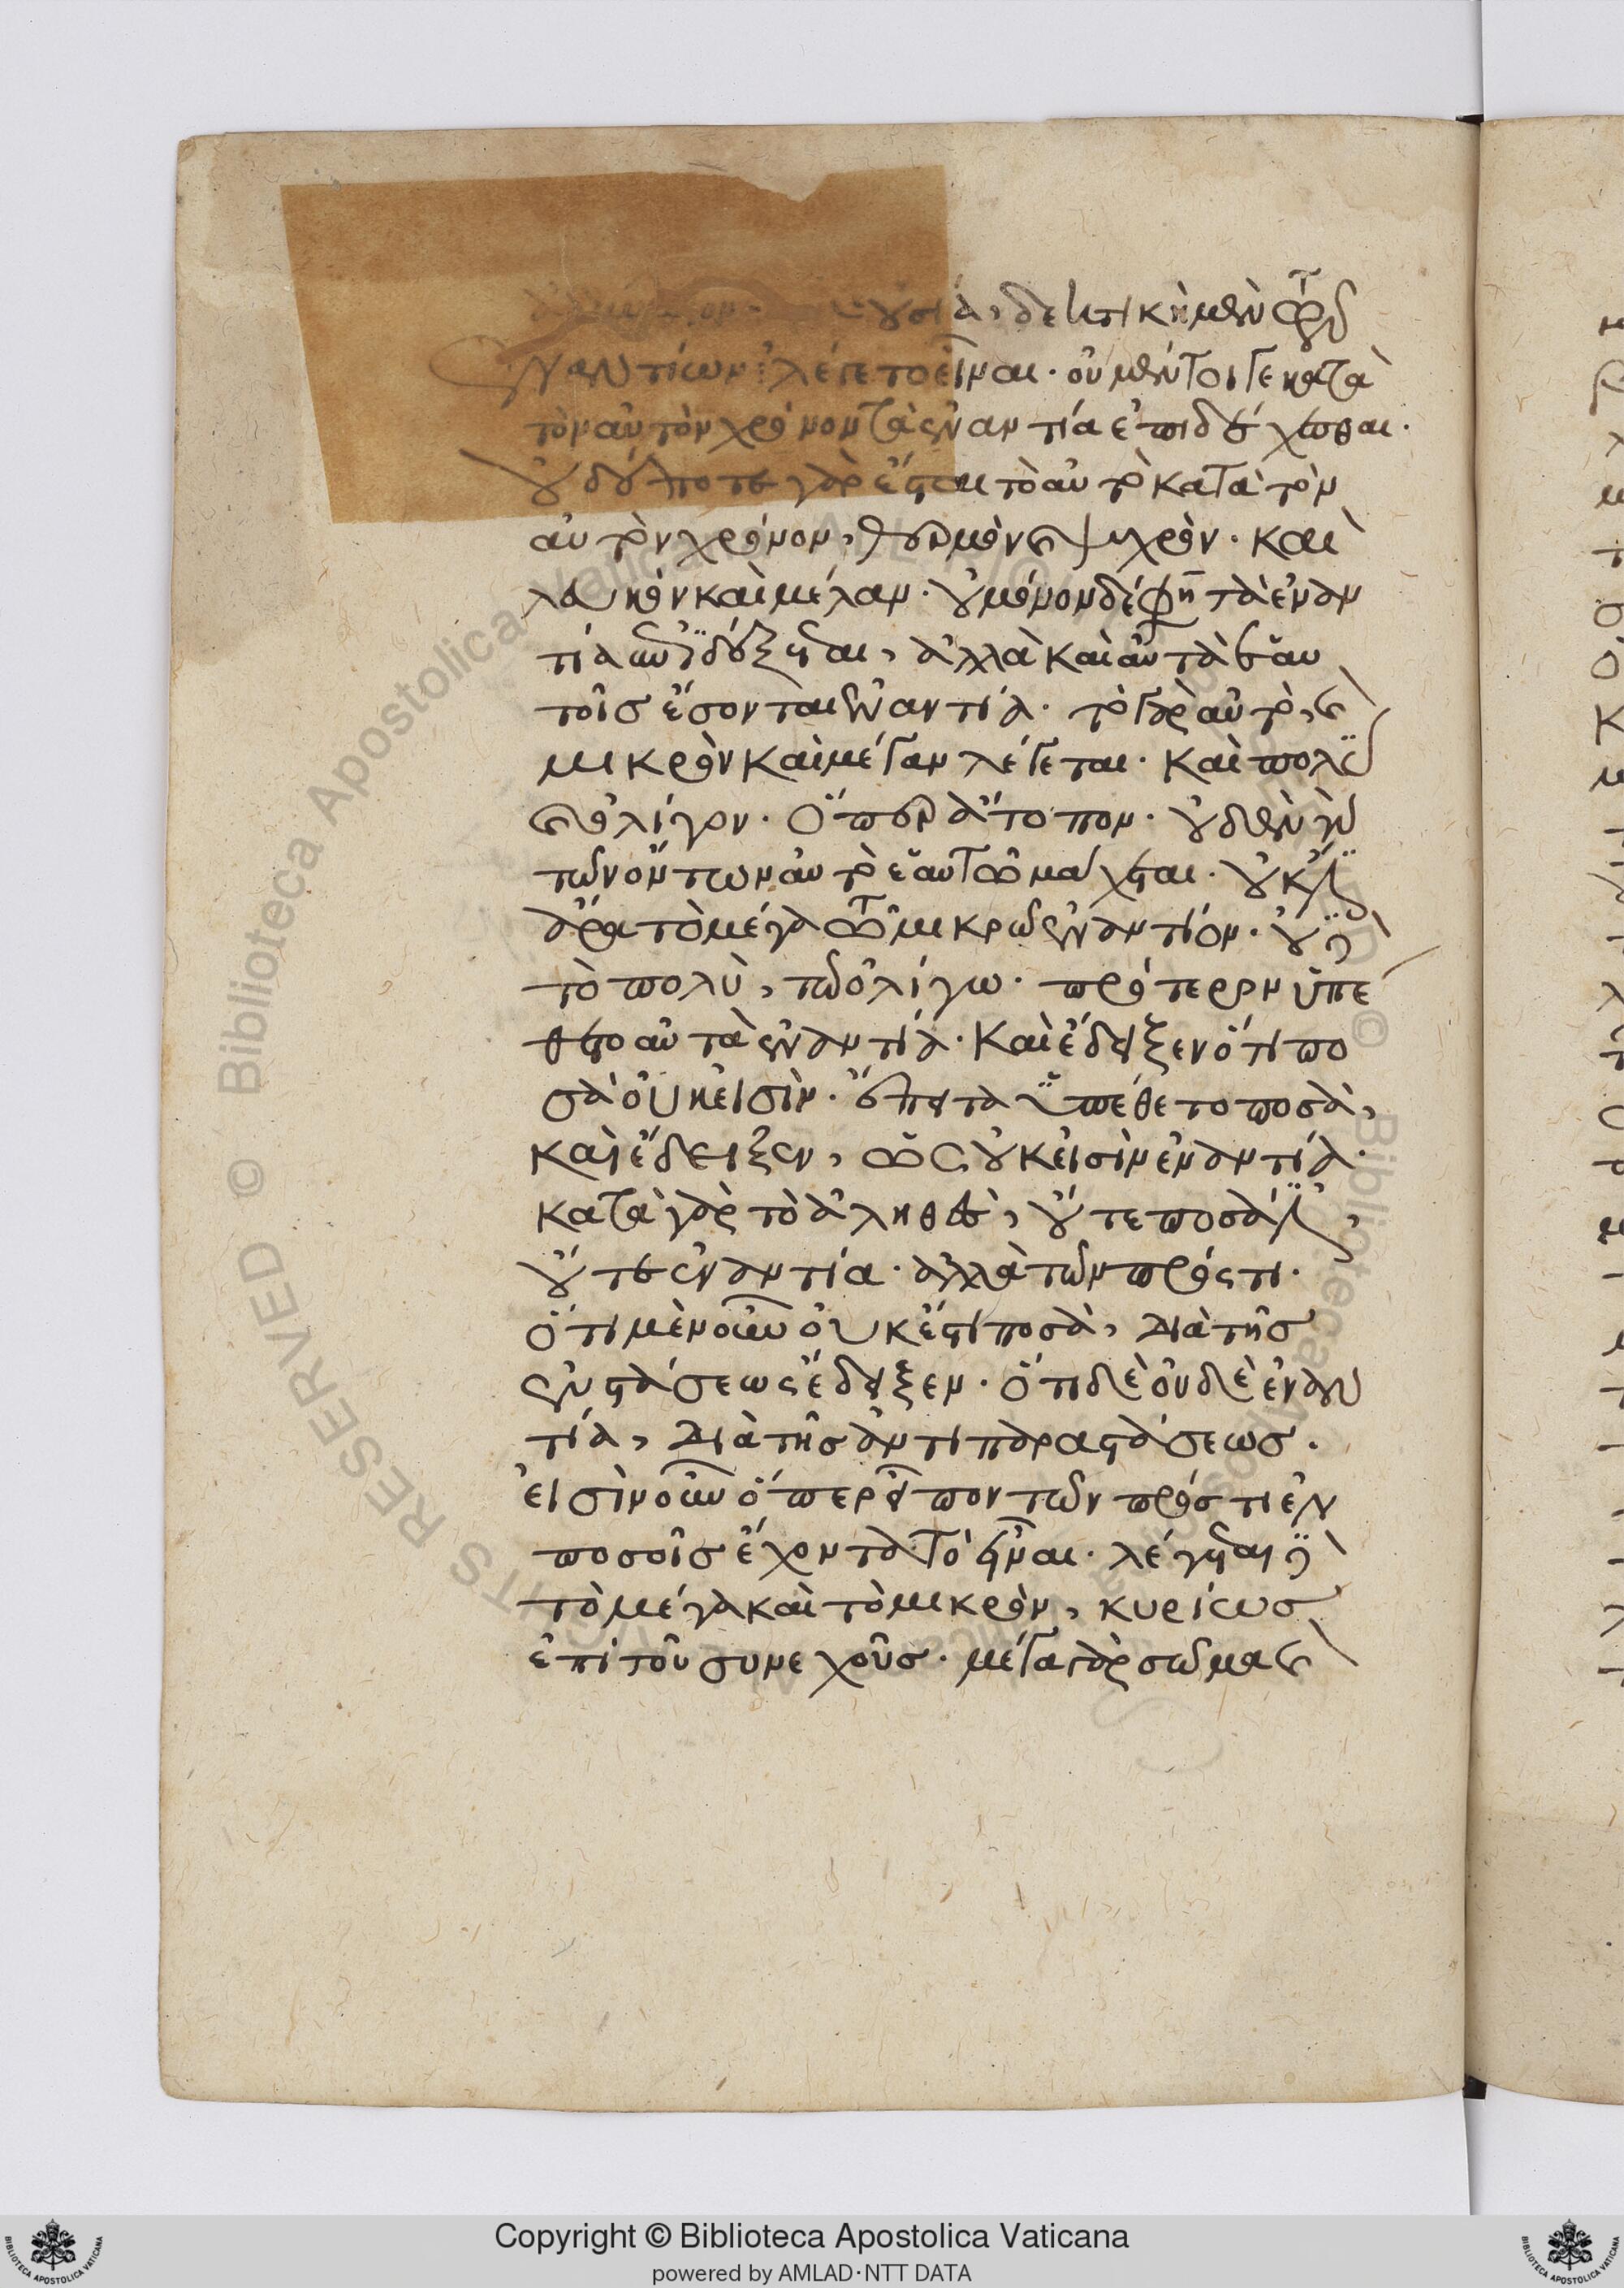 οὐσία, δεκτικὴ μὲν τῶν
ἐναντίων ἐλέγετο εἶναι. οὐ μέντοι γε κατὰ
τὸν αὐτὸν χρόνον τὰ ἐναντία ἐπιδέχεσθαι.
οὐδέποτε γὰρ ἔσται τὸ αὐτὸ κατὰ τὸν
αὐτὸν χρόνον, θερμὸν καὶ ψυχρόν. καὶ
λευκὸν καὶ μέλαν. οὐ μόνον δέ φη τὰ ἐναν
τία ἐπιδέξεται, ἀλλὰ καὶ αὐτὰ ἑαυ
τοῖς ἔσονται ἐναντία. τὸ γὰρ αὐτὸ, καὶ
μικρὸν καὶ μέγαν λέγεται. καὶ πολὺ
καὶ ὀλίγον. ὅπερ ἄτοπον. οὐδὲν γὰρ
τῶν ὄντων αὐτὸ ἑαυτῶ μάχεται. οὐκ
ἄρα τὸ μέγα τῶ μικρῶ ἐναντίον. οὐδὲ
τὸ πολὺ, τῶ ὀλίγω. πρότερον ὑπέ
θετο αὐτὰ ἐναντία. καὶ ἔδειξεν ὅτι πο
σὰ οὐκ εἰσίν. ἔπειτα ὑπέθετο ποσὰ,
καὶ ἔδειξεν, ὡς οὐκ εἰσὶν ἐναντία.
κατὰ γὰρ τὸ ἀληθὲς, οὔτε ποσά εἰσιν,
οὔτε ἐναντία. ἀλλὰ τῶν πρός τι.
ὅτι μὲν οὖν οὐκ ἔστι ποσὰ, διὰ τῆς
ἐνστάσεως ἔδειξεν. ὅτι δὲ οὐδὲ ἐναν
τία, διὰ τῆς ἀντιπαραστάσεως.
εἰσὶν οὖν ὅπερ εἶπον τῶν πρός τι ἐν
ποσοῖς ἔχοντα τὸ εἶναι. λέγεται δὲ
τὸ μέγα καὶ τὸ μικρὸν, κυρίως
ἐπὶ τοῦ συνεχοῦς. μέγα γὰρ σῶμα καὶ
Copyright © Biblioteca Apostolica Vaticana
powered by AMLAD·NTT DATA